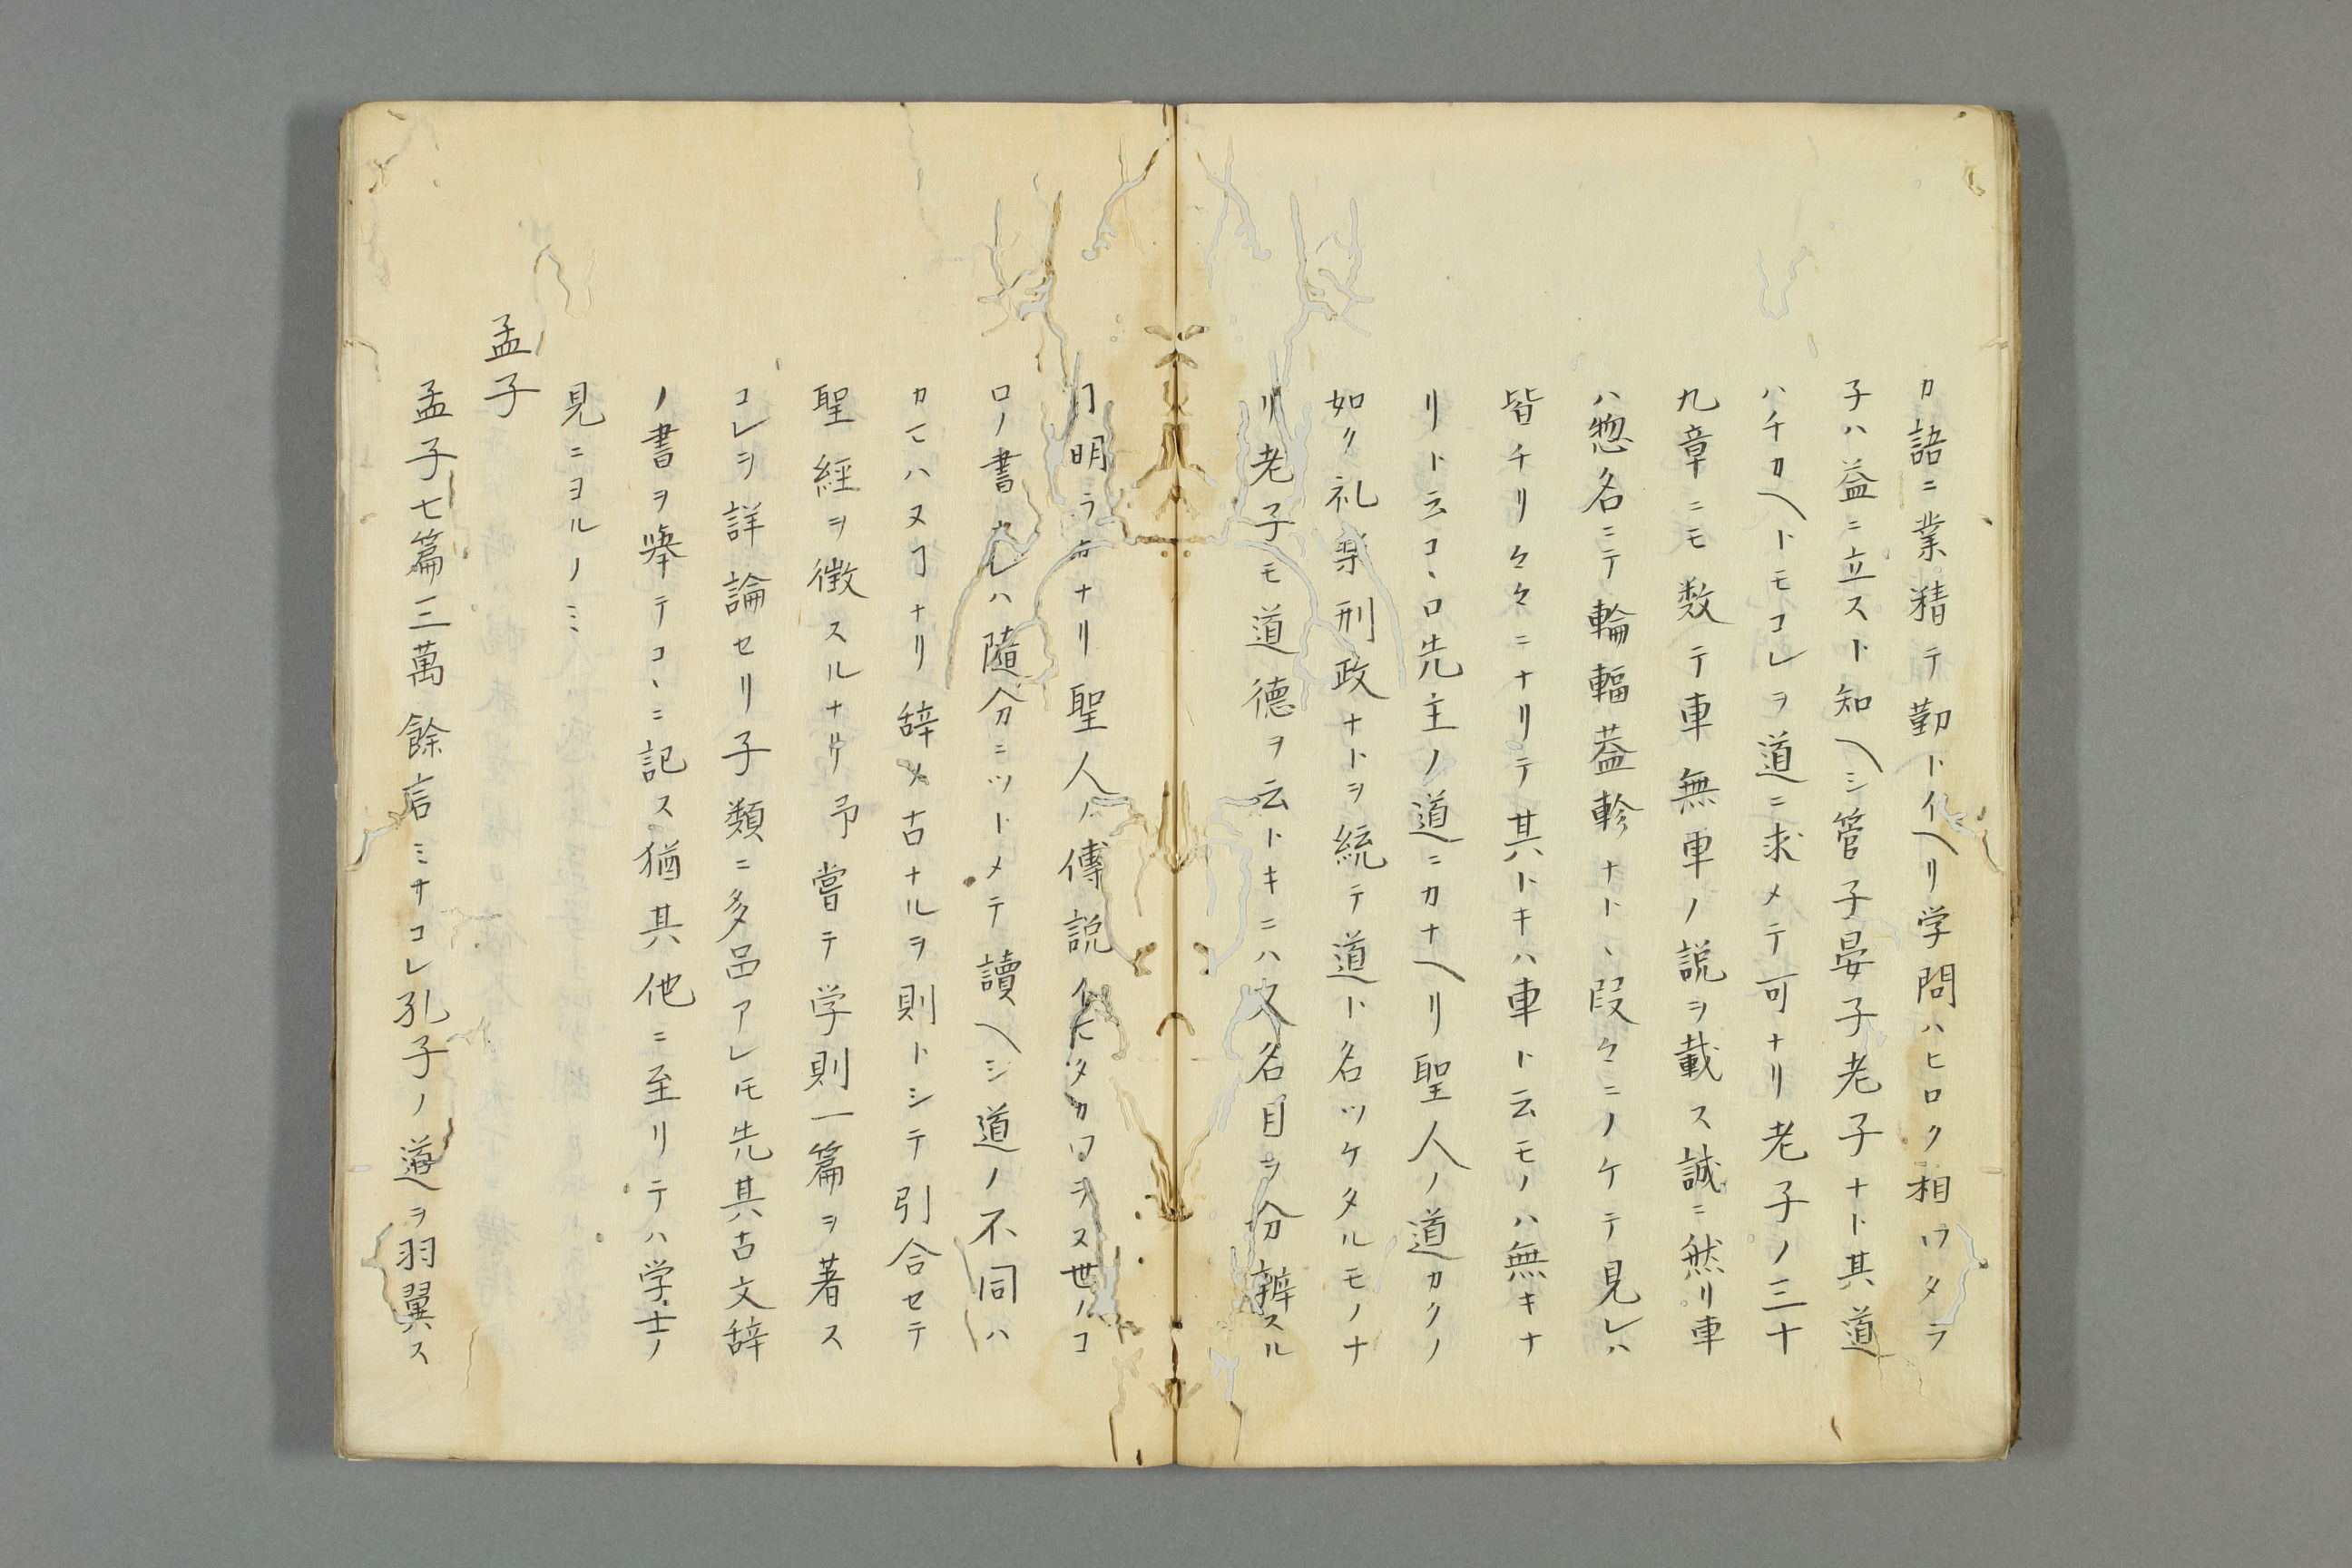 カ語ニ業精テ勤トイヘリ学問ハヒロク相ワタラ
子ハ益ニ立スト知ヘシ管子晏子老子ナト其道
ハチカヘトモコレヲ道ニ求メテ可ナリ老子ノ三十
九章ニモ数テ車無車ノ説ヲ載ス誠ニ然リ車
ハ惣名ニテ輪輻葢軫ナト、段々ニノケテ見レハ
皆チリ々々ニナリテ其トキハ車ト云モノハ無キナ
リト云コ、ロ先主ノ道ニカナヘリ聖人ノ道カクノ
如ク礼楽刑政ナトヲ統テ道ト名ツケタルモノナ
リ老子モ道徳ヲ云トキニハ又名目ヲ分辨スル
ヿ明ラカナリ聖人ノ傳説イヒタカワヲス世ノコ
ロノ書ナレハ随分ニツトメテ讀ヘシ道ノ不同ハ
カマハヌヿナリ辞メ古ナルヲ則トシテ引合セテ
聖經ヲ徴スルナリ予嘗テ学則一篇ヲ著ス
コレヲ詳論セリ子類ニ多品アレ𪜈先其古文辞
ノ書ヲ挙テコ、ニ記ス猶其他ニ至リテハ学士ノ
見ニヨルノミ
孟子
孟子七篇三萬餘言ミナコレ孔子ノ道ヲ羽翼ス